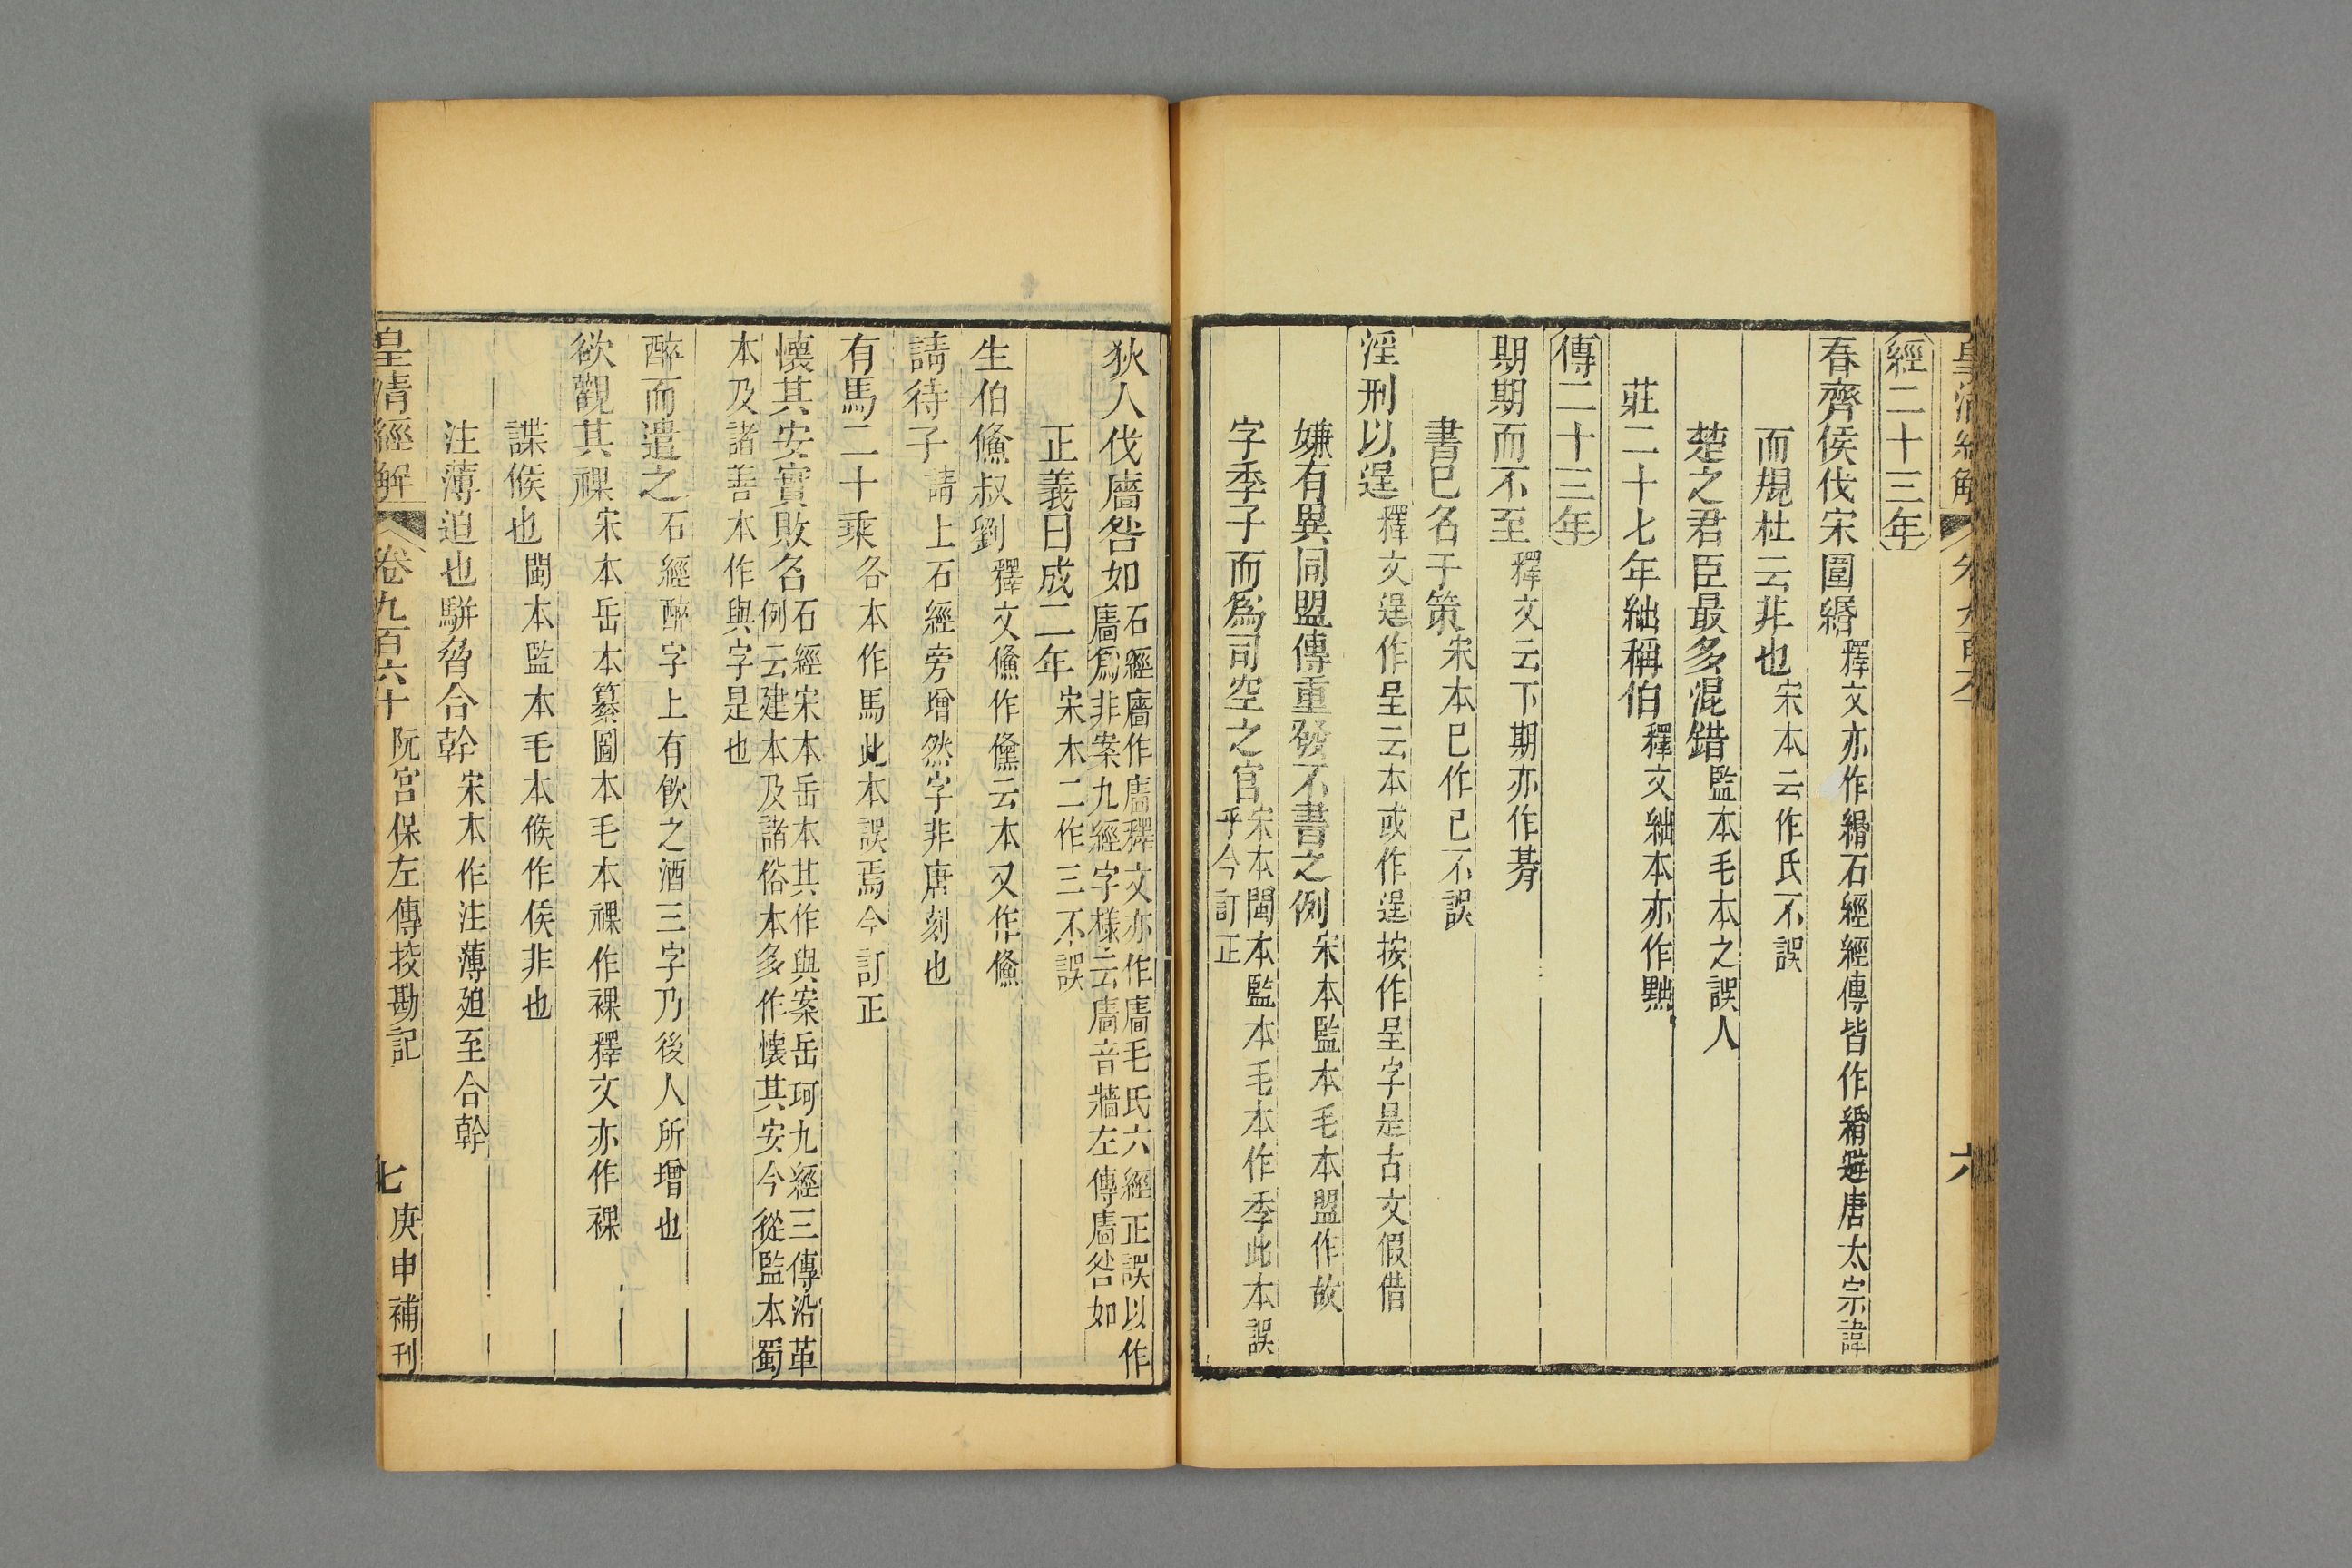 皇清經解 卷九百六十 六
經二十三年
春齊侯伐宋圍緡釋文亦作緡石經經傳皆作緍避唐太宗諱
而規杜云非也宋本云作氏不誤
楚之君臣最多混錯監本毛本之誤人
莊二十七年絀稱伯釋文絀本亦作黜
傳二十三年
期期而不至釋文云下期亦作朞
書已名于策宋本已作己不誤
淫刑以逞釋文逞作呈云本或作逞按作呈字是古文假借
嫌有異同盟傳重發不書之例宋本監本毛本盟作故
字季子而為司空之官宋本閩本監本毛本作季此本誤
乎今訂正
狄人伐廧咎如石經廧作廥釋文亦作廥毛氏六經正誤以作
廥為非案九經字樣云廥音牆左傳廥咎如
正義曰成二年宋本二作三不誤
生伯鯈叔劉釋文鯈作儵云本又作鯈
請待子請上石經旁增然字非唐刻也
有馬二十乘各本作馬此本誤焉今訂正
懷其安實敗名石經宋本岳本其作與案岳珂九經三傳沿革
例云建本及諸俗本多作懷其安今從監本蜀
本及諸善本作與字是也
醉而遣之石經醉字上有飲之酒三字乃後人所增也
欲觀其裸宋本岳本纂圖本毛本裸作裸釋文亦作裸
諜候也閩本監本毛本候作侯非也
注薄迫也駢脅合幹宋本作注薄廹至合幹
皇清經解 卷九百六十 阮宮保左傳挍勘記 七 庚申補刊